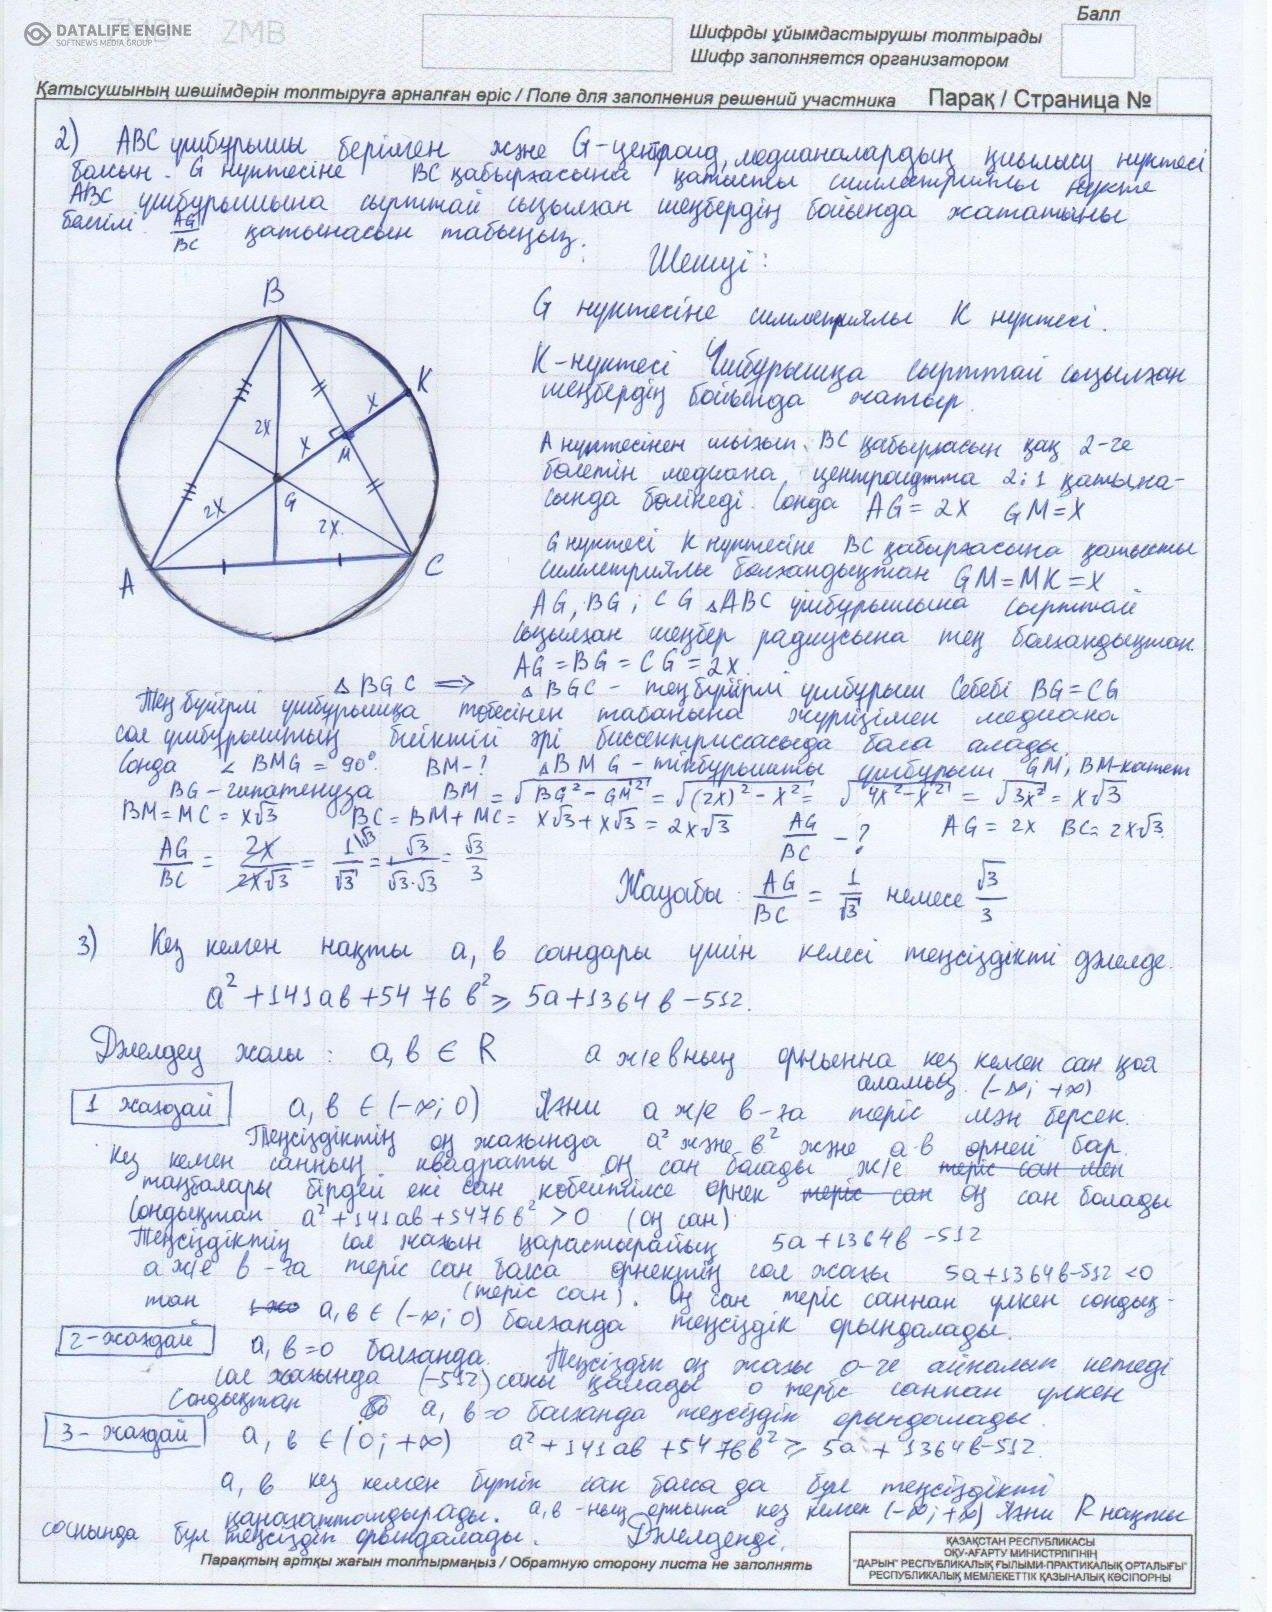 DATALIFE ENGINE
SOFTNEWS MEDIA GROUP
ZMB ZMB
Балл
Шифрды ұйымдастырушы толтырады
Шифр заполняется организатором
Қатысушының шешімдерін толтыруға арналған өріс / Поле для заполнения решений участника Парақ / Страница №
2) ABC үшбұрышы берілген және G-центроид, медианалардың қиылысу нүктесі
болсын. G нүктесіне BC қабырғасына қатысты симметриялы нүкте
ABC үшбұрышына сырттай сызылған шеңбердің бойында жататыны
белгілі. AG/BC қатынасын табыңыз.
Шешуі:
G нүктесіне симметриялы K нүктесі.
K-нүктесі Үшбұрышқа сырттай сызылған
шеңбердің бойында жатыр.
A нүктесінен шығып. BC қабырғасын қақ 2-ге
бөлетін медиана центроидта 2:1 қатына-
сында бөлінеді. Сонда AG = 2x GM = x
G нүктесі K нүктесіне BC қабырғасына қатысты
симметриялы болғандықтан GM = MK = x
AG, BG, CG △ABC үшбұрышына сырттай
сызылған шеңбер радиусына тең болғандықтан.
AG = BG = CG = 2x.
B
K
x
2x
x
M
G
2x
2x.
A
C
△BGC ⟹ △BGC - теңбүйірлі үшбұрыш себебі BG = CG
Тең бүйірлі үшбұрышқа төбесінен табанына жүргізілген медиана
сол үшбұрыштың биіктігі әрі биссектриссасыда бола алады.
Сонда ∠BMG = 90°. BM-? △BMG - тікбұрышты үшбұрыш GM, BM-катет
BG - гипатенуза BM = √(BG² - GM²) = √((2x)² - x²) = √(4x² - x²) = √(3x²) = x√3
BM = MC = x√3 BC = BM + MC = x√3 + x√3 = 2x√3 AG/BC - ? AG = 2x BC = 2x√3.
AG/BC = 2x/2x√3 = 1/√3 = √3/√3·√3 = √3/3
Жауабы: AG/BC = 1/√3 немесе √3/3
3) Кез келген нақты a, b сандары үшін келесі теңсіздікті дәлелде.
a² + 141ab + 5476b² ≥ 5a + 1364b - 512.
Дәлелдеу жолы: a, b ∈ R a ж/е b ның орнынна кез келген сан қоя
аламыз. (-∞; +∞)
1 жағдай a, b ∈ (-∞; 0) Яғни a ж/е b-ға теріс мән берсек.
Теңсіздіктің оң жағында a² және b² және a·b өрнегі бар.
Кез келген санның квадраты оң сан болады ж/е теріс сан мен
таңбалары бірдей екі сан көбейтілсе өрнек теріс сан оң сан болады
Сондықтан a² + 141ab + 5476b² > 0 (оң сан)
Теңсіздіктің сол жағын қарастырайық 5a + 1364b - 512
a ж/е b -ға теріс сан болса өрнектің сол жағы 5a + 1364b - 512 < 0
(теріс сан). Оң сан теріс саннан үлкен сондық-
тан a, b ∈ (-∞; 0) болғанда теңсіздік орындалады.
2-жағдай a, b = 0 болғанда. Теңсіздік оң жағы 0-ге айналып кетеді
сол жағында (-512) саны қалады 0 теріс саннан үлкен
Сондықтан a, b = 0 болғанда теңсіздік орындалады.
3-жағдай a, b ∈ (0; +∞) a² + 141ab + 5476b² ≥ 5a + 1364b - 512.
a, b кез келген бүтін сан болса да бұл теңсіздікті
қанағаттандырады. a, b -ның орнына кез келген (-∞; +∞) Яғни R нақты
санында бұл теңсіздік орындалады. Дәлелденді.
Парақтың артқы жағын толтырмаңыз / Обратную сторону листа не заполнять
ҚАЗАҚСТАН РЕСПУБЛИКАСЫ
ОҚУ-АҒАРТУ МИНИСТРЛІГІНІҢ
"ДАРЫН" РЕСПУБЛИКАЛЫҚ ҒЫЛЫМИ-ПРАКТИКАЛЫҚ ОРТАЛЫҒЫ"
РЕСПУБЛИКАЛЫҚ МЕМЛЕКЕТТІК ҚАЗЫНАЛЫҚ КӘСІПОРНЫ